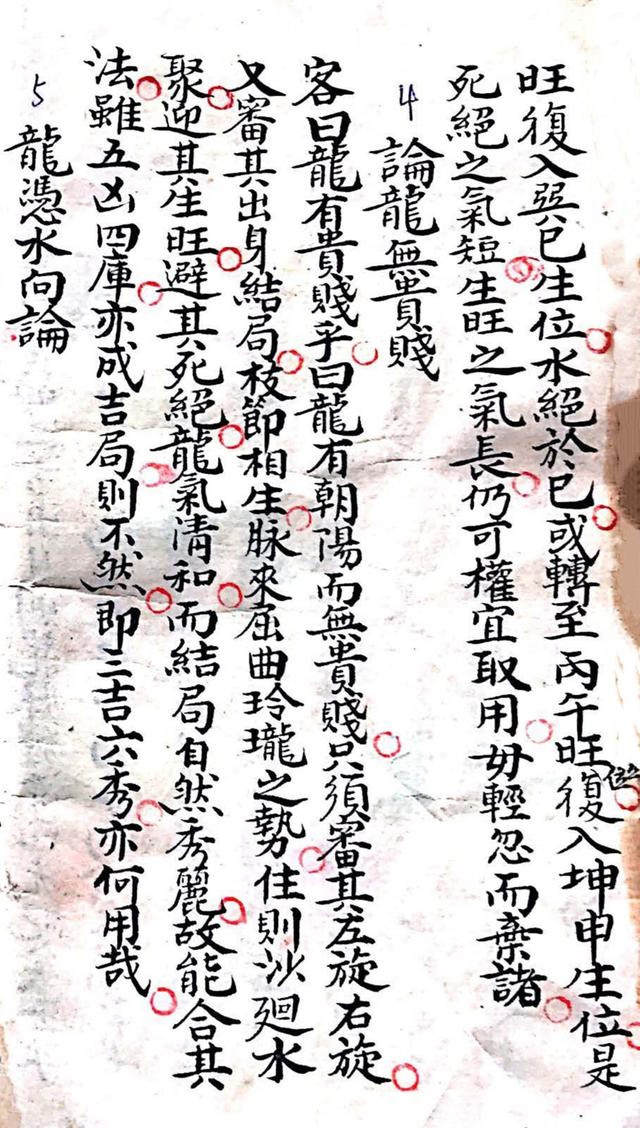 旺復入巽巳生位水絕於巳或轉至丙午旺位復入坤申生位是
死絕之氣短生旺之氣長仍可權宜取用毋輕忽而棄諸
4 論龍無貴賤
客曰龍有貴賤乎曰龍有朝陽而無貴賤只須審其左旋右旋
又審其出身結局枝節相生脉來屈曲玲瓏之勢住則沙迴水
聚迎其生旺避其死絕龍氣清和而結局自然秀麗故能合其
法雖五凶四庫亦成吉局則不然即三吉六秀亦何用哉
5 龍憑水向論